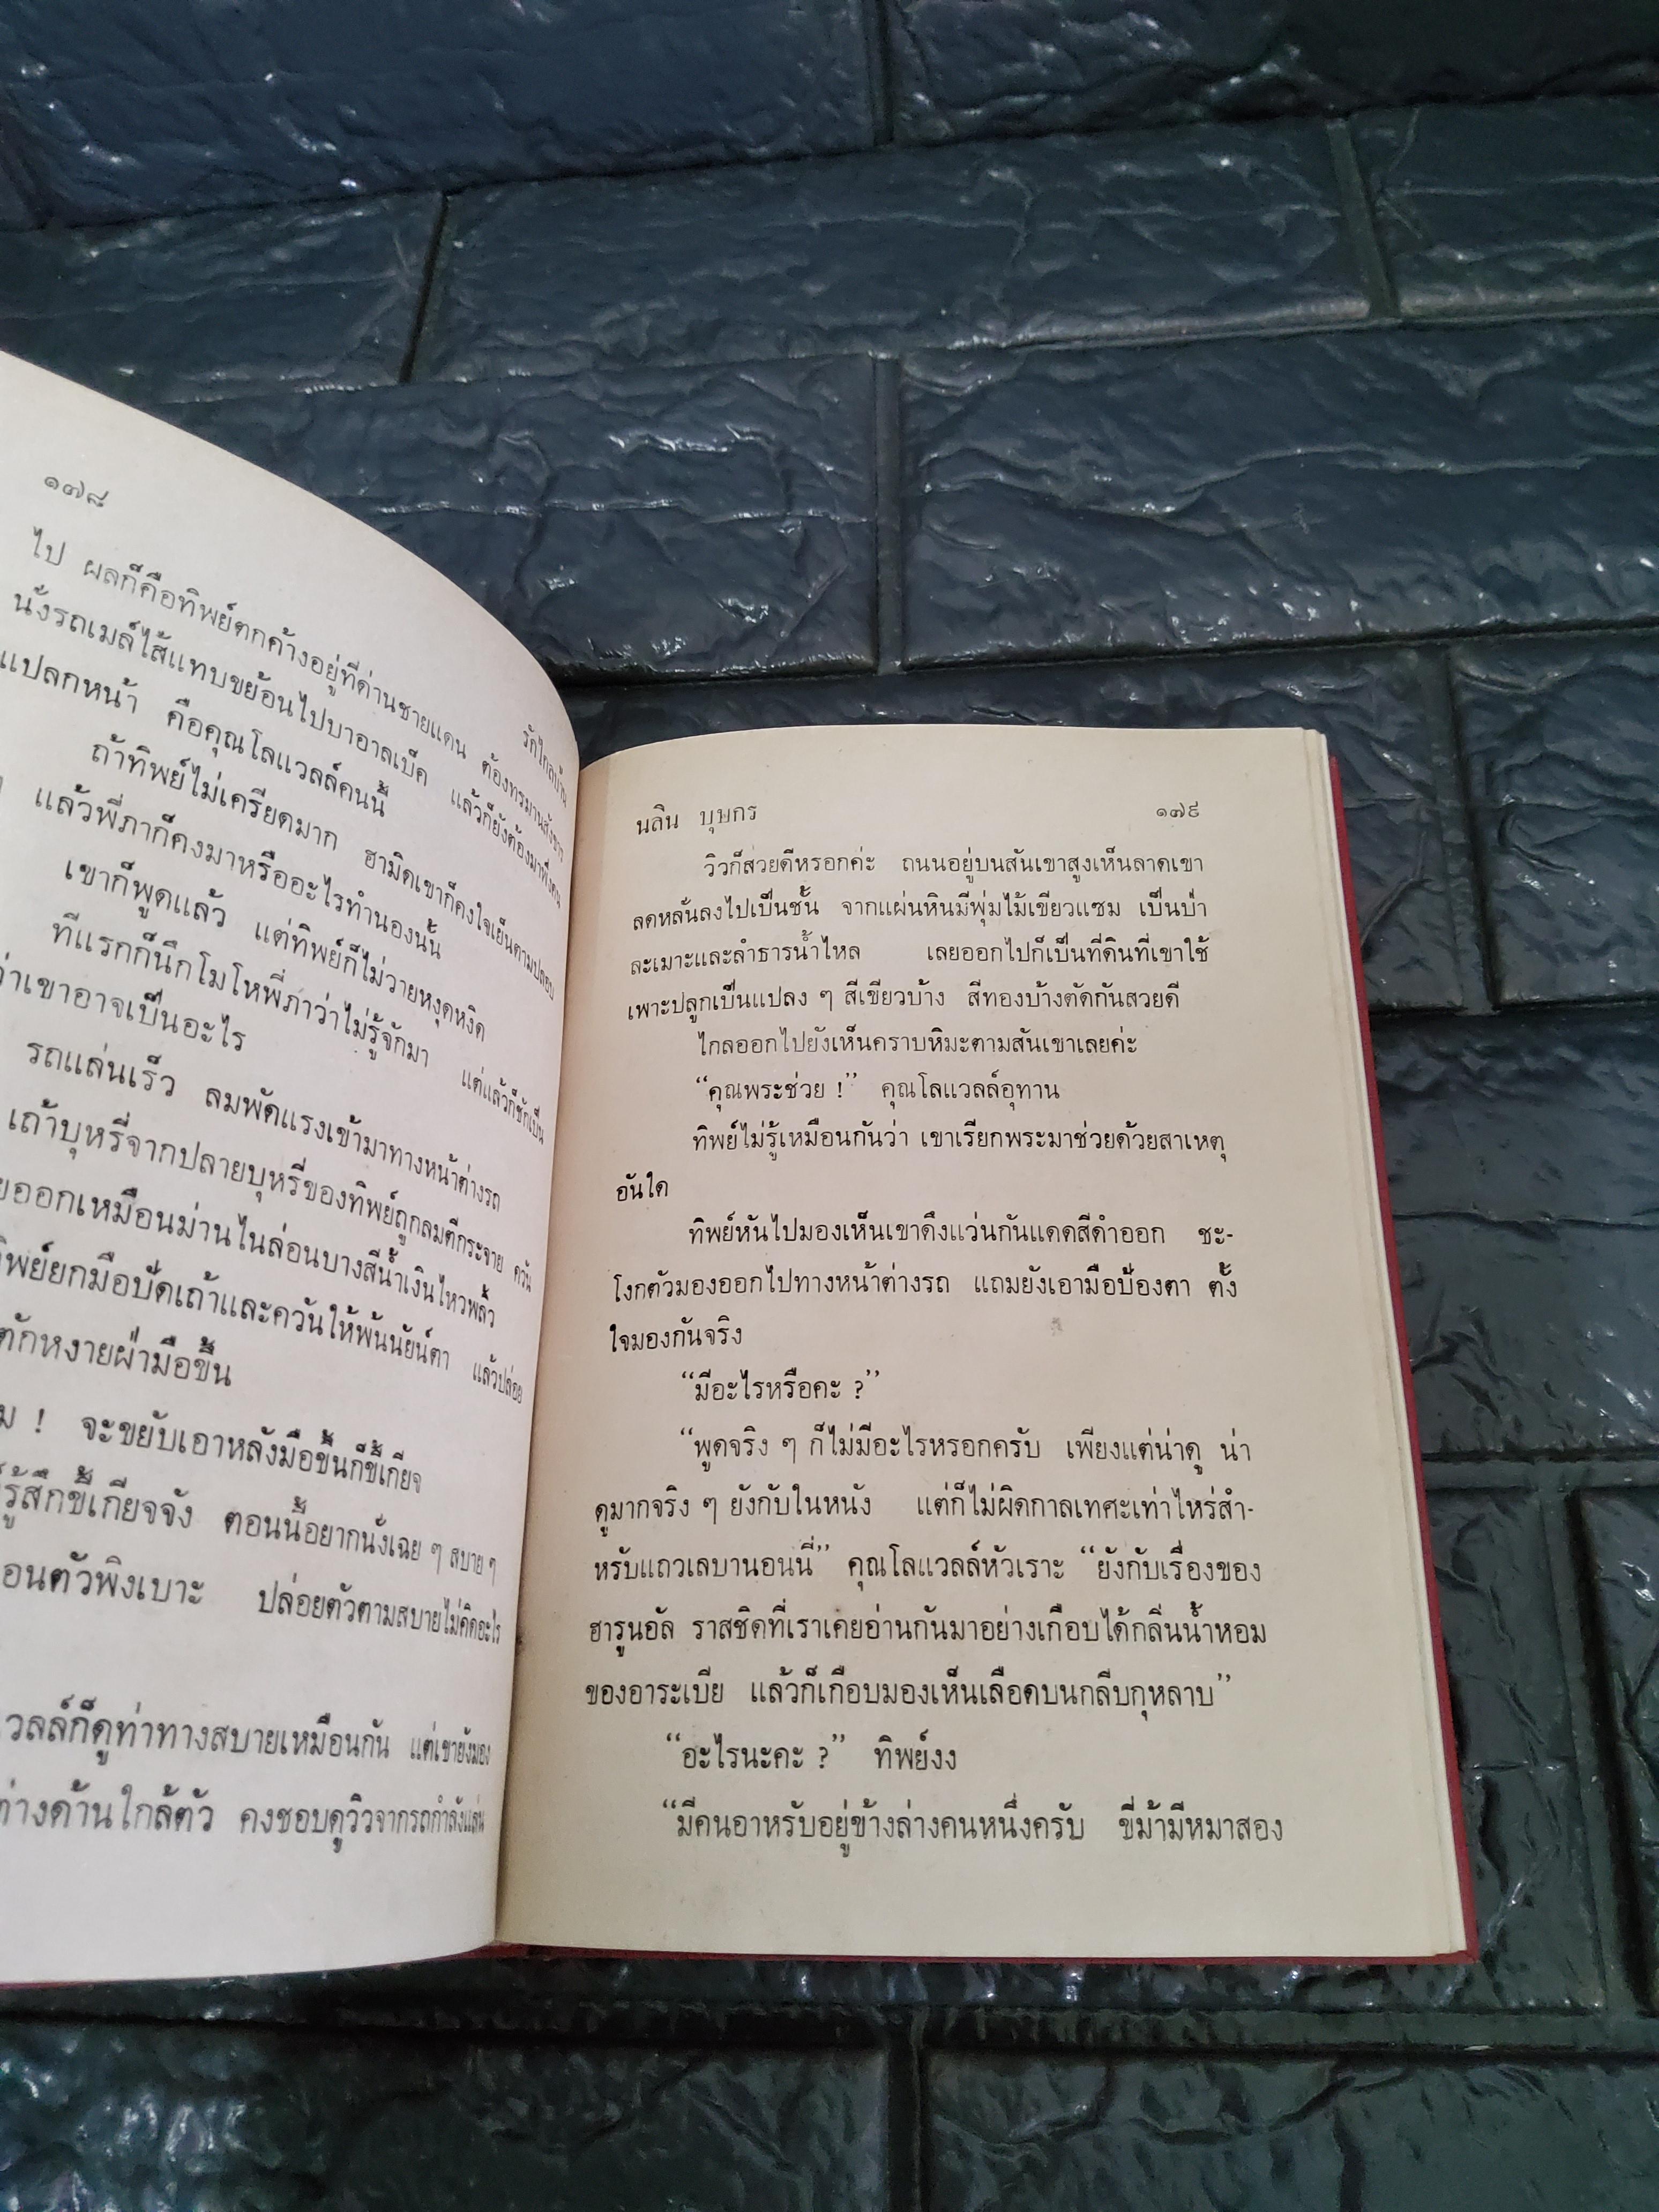 ๑๗๘
รักไกลบ้าน
ไป ผลก็คือทิพย์ตกค้างอยู่ที่ด่านชายแดน ต้องทรมานสังขาร
นั่งรถเมล์ไส้แทบขย้อนไปบาอาลเบ็ค แล้วก็ยังต้องมาพึ่งคน
แปลกหน้า คือคุณโลแวลล์คนนี้
ถ้าทิพย์ไม่เครียดมาก ฮามิดเขาก็คงใจเย็นตามปลอบ
แล้วพี่ภาก็คงมาหรืออะไรทำนองนั้น
เขาก็พูดแล้ว แต่ทิพย์ก็ไม่วายหงุดหงิด
ทีแรกก็นึกโมโหพี่ภาว่าไม่รู้จักมา แต่แล้วก็ชักเป็น
ว่าเขาอาจเป็นอะไร
รถแล่นเร็ว ลมพัดแรงเข้ามาทางหน้าต่างรถ
เถ้าบุหรี่จากปลายบุหรี่ของทิพย์ถูกลมตีกระจาย ควัน
ออกเหมือนม่านไนล่อนบางสีน้ำเงินไหวพลิ้ว
ทิพย์ยกมือปัดเถ้าและควันให้พ้นนัยน์ตา แล้วปล่อย
ตักหงายฝ่ามือขึ้น
! จะขยับเอาหลังมือขึ้นก็ขี้เกียจ
รู้สึกขี้เกียจจัง ตอนนี้อยากนั่งเฉย ๆ สบาย ๆ
ตัวพิงเบาะ ปล่อยตัวตามสบายไม่คิดอะไร
แวลล์ก็ดูท่าทางสบายเหมือนกัน แต่เขายังมอง
ต่างด้านใกล้ตัว คงชอบดูวิวจากรถกำลังแล่น
นลิน บุษกร
๑๗๙
วิวก็สวยดีหรอกค่ะ ถนนอยู่บนสันเขาสูงเห็นลาดเขา
ลดหลั่นลงไปเป็นชั้น จากแผ่นหินมีพุ่มไม้เขียวแซม เป็นป่า
ละเมาะและลำธารน้ำไหล เลยออกไปก็เป็นที่ดินที่เขาใช้
เพาะปลูกเป็นแปลง ๆ สีเขียวบ้าง สีทองบ้างตัดกันสวยดี
ไกลออกไปยังเห็นคราบหิมะตามสันเขาเลยค่ะ
“คุณพระช่วย !” คุณโลแวลล์อุทาน
ทิพย์ไม่รู้เหมือนกันว่า เขาเรียกพระมาช่วยด้วยสาเหตุ
อันใด
ทิพย์หันไปมองเห็นเขาดึงแว่นกันแดดสีดำออก ชะ-
โงกตัวมองออกไปทางหน้าต่างรถ แถมยังเอามือป้องตา ตั้ง
ใจมองกันจริง
“มีอะไรหรือคะ ?”
“พูดจริง ๆ ก็ไม่มีอะไรหรอกครับ เพียงแต่น่าดู น่า
ดูมากจริง ๆ ยังกับในหนัง แต่ก็ไม่ผิดกาลเทศะเท่าไหร่สำ-
หรับแถวเลบานอนนี่” คุณโลแวลล์หัวเราะ “ยังกับเรื่องของ
ฮารูนอัล ราสชิดที่เราเคยอ่านกันมาอย่างเกือบได้กลิ่นน้ำหอม
ของอาระเบีย แล้วก็เกือบมองเห็นเลือดบนกลีบกุหลาบ”
“อะไรนะคะ ?” ทิพย์งง
“มีคนอาหรับอยู่ข้างล่างคนหนึ่งครับ ขี่ม้ามีหมาสอง